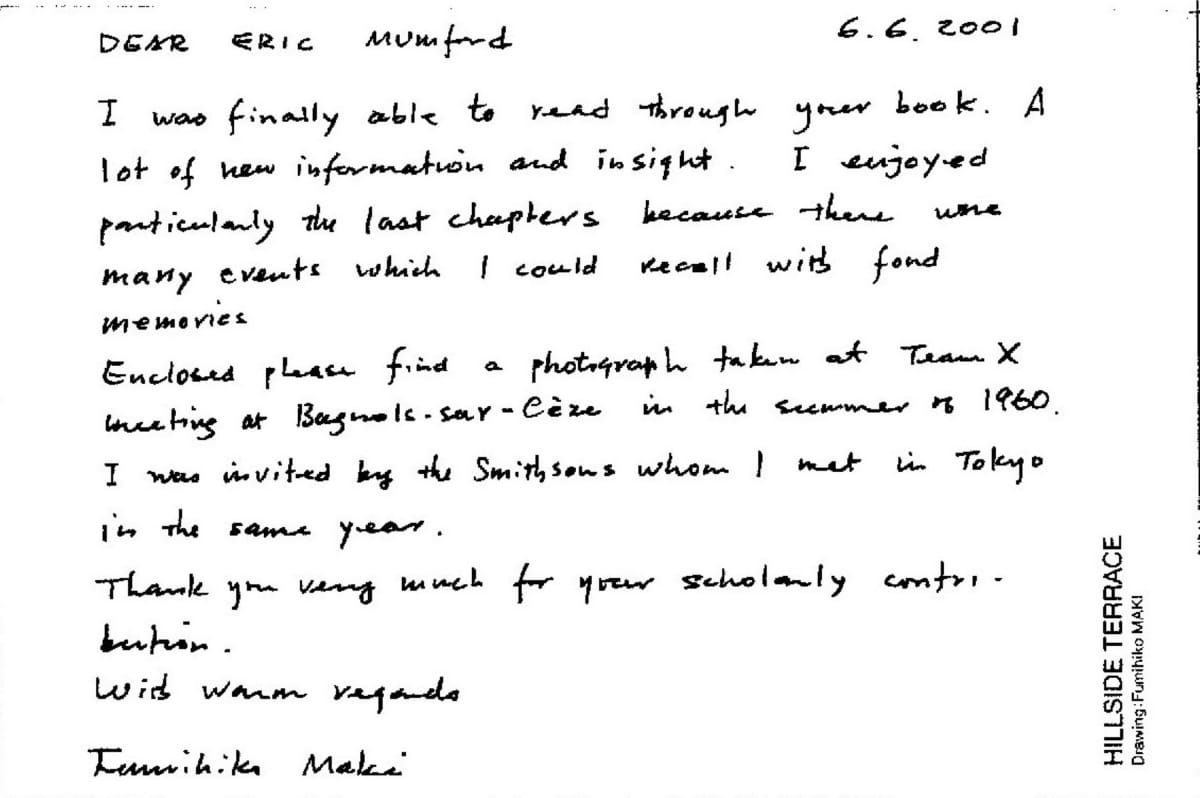 6.6.2001
DEAR ERIC Mumford
I was finally able to read through your book. A
lot of new information and insight. I enjoyed
particularly the last chapters because there were
many events which I could recall with fond
memories
Enclosed please find a photograph taken at Team X
meeting at Bagnols-sur-Cèze in the summer of 1960.
I was invited by the Smithsons whom I met in Tokyo
in the same year.
Thank you very much for your scholarly contri-
bution.
With warm regards
Fumihiko Maki
HILLSIDE TERRACE
Drawing:Fumihiko MAKI